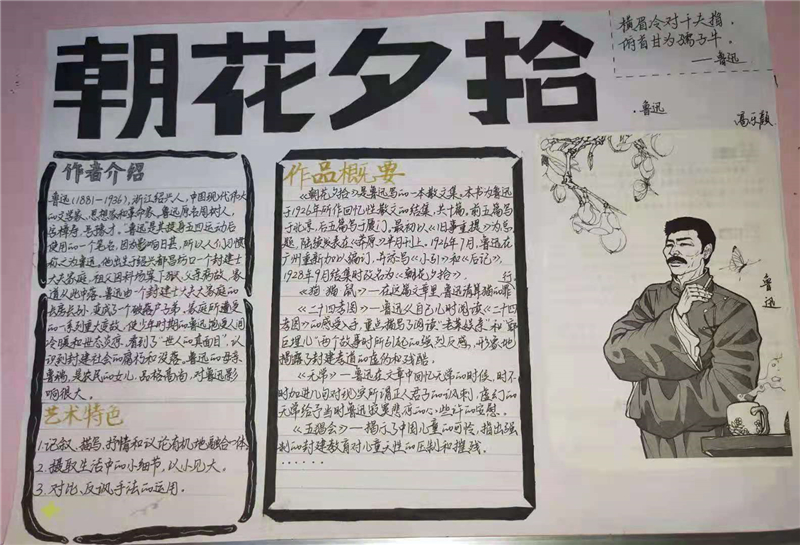 朝花夕拾
横眉冷对千夫指,
俯首甘为孺子牛。
——鲁迅
·鲁迅
作者介绍
鲁迅(1881-1936),浙江绍兴人,中国现代伟大
的文学家、思想家和革命家。鲁迅原名周树人,
鲁迅是其投身五四运动后
使用的一个笔名,因为影响日甚,所以人们习惯
称之为鲁迅。他出生于绍兴都昌坊口一个封建士
大夫家庭,祖父因科场案下狱,父亲病故,家
道从此中落。鲁迅由一个封建士大夫家庭的
长房长孙,变成了个破落户子弟。家庭所遭受
的一系列重大变故,使少年时期的鲁迅饱受人间
冷暖和世态炎凉,看到了“世人的真面目”,认
识到封建社会的腐朽和没落。鲁迅的母亲
鲁瑞,是农民的女儿,品格高尚,对鲁迅影
响很大。
艺术特色
1.记叙、描写、抒情和议论有机地融合一体
2.摄取生活中的小细节,以小见大。
3.对比、反讽手法的运用。
作品概要
《朝花夕拾》是鲁迅写的一本散文集。本书为鲁迅
于1926年所作回忆性散文的结集,共十篇。前五篇写
于北京,后五篇写于厦门。最初以《旧事重提》为总
题,陆续发表在《莽原》半月刊上。1926年7月,鲁迅在
广州重新加以编订,并添写《小引》和《后记》,
1928年9月结集时改名为《朝花夕拾》。
行
《狗 猫 鼠》—在这篇文章里鲁迅清算猫的罪
《二十四孝图》—鲁迅从自己儿时阅读《二十四
孝图》的感受入手,重点描写了阅读“老莱娱亲”和“郭
巨埋儿”两个故事时所引起的强烈反感,形象地
揭露了封建孝道的虚伪和残酷。
《无常》—鲁迅在文章中回忆无常的时候,时不
时加进几句对现实所谓正人君子的讽刺,虚幻的
无常给予当时鲁迅寂寞悲凉的心些许的安慰。
《五猖会》—揭示了中国儿童的可怜,指出强
制的封建教育对儿童天性的压制和摧残。
······
鲁迅